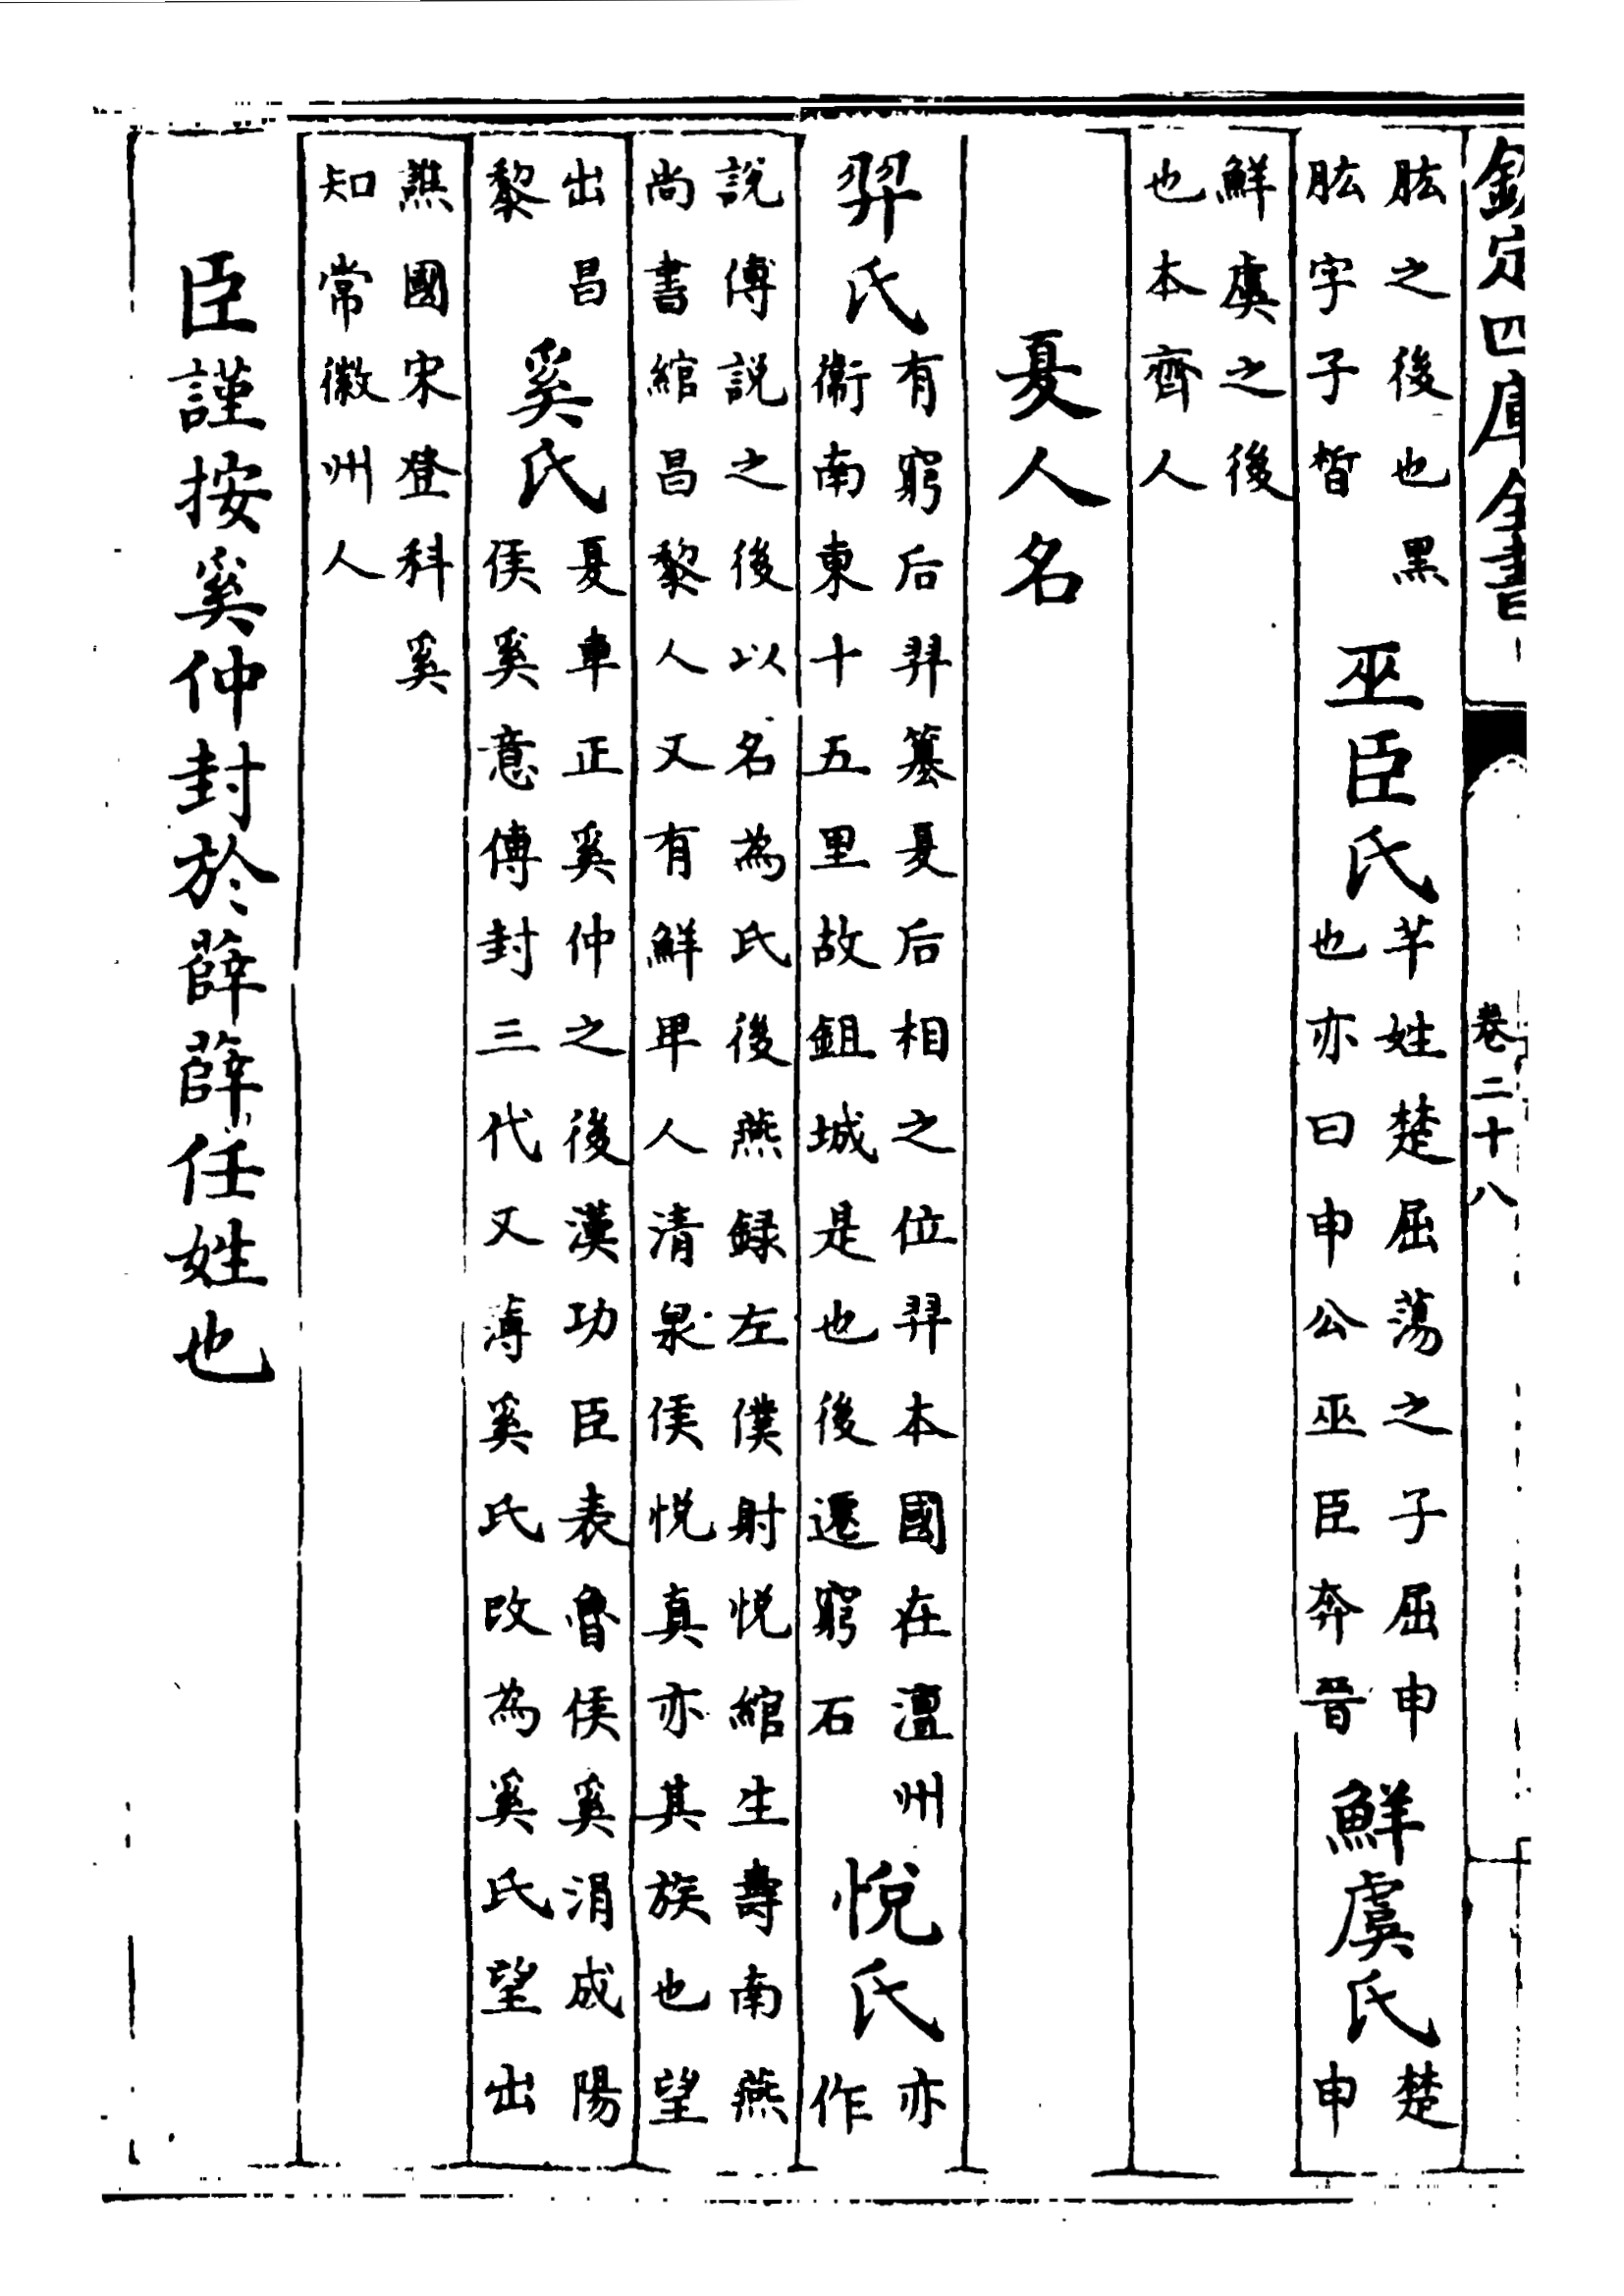 欽定四庫全書
卷二十八
肱之後也黑
肱字子晳
巫臣氏
芊姓楚屈蕩之子屈申
也亦曰申公巫臣奔晉
鮮虞氏
楚
申
鮮虞之後
也本齊人
夏人名
羿氏
有窮后羿篡夏后相之位羿本國在澶州
衞南東十五里故鉏城是也後遷窮石
悅氏
亦
作
說傅說之後以名為氏後燕録左僕射悅綰生壽南燕
尚書綰昌黎人又有鮮卑人清泉侯悅真亦其族也望
出昌
黎
奚氏
夏車正奚仲之後漢功臣表魯侯奚涓成陽
侯奚意傅封三代又薄奚氏改為奚氏望出
譙國宋登科奚
知常徽州人
臣謹按奚仲封於薛薛任姓也